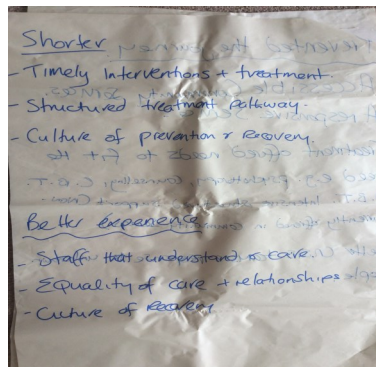 Shorter
- Timely Interventions + treatment.
- Structured treatment pathway.
- Culture of prevention & recovery.
Better experience
- Staff that understand & care.
- Equality of care + relationships
- Culture of recovery